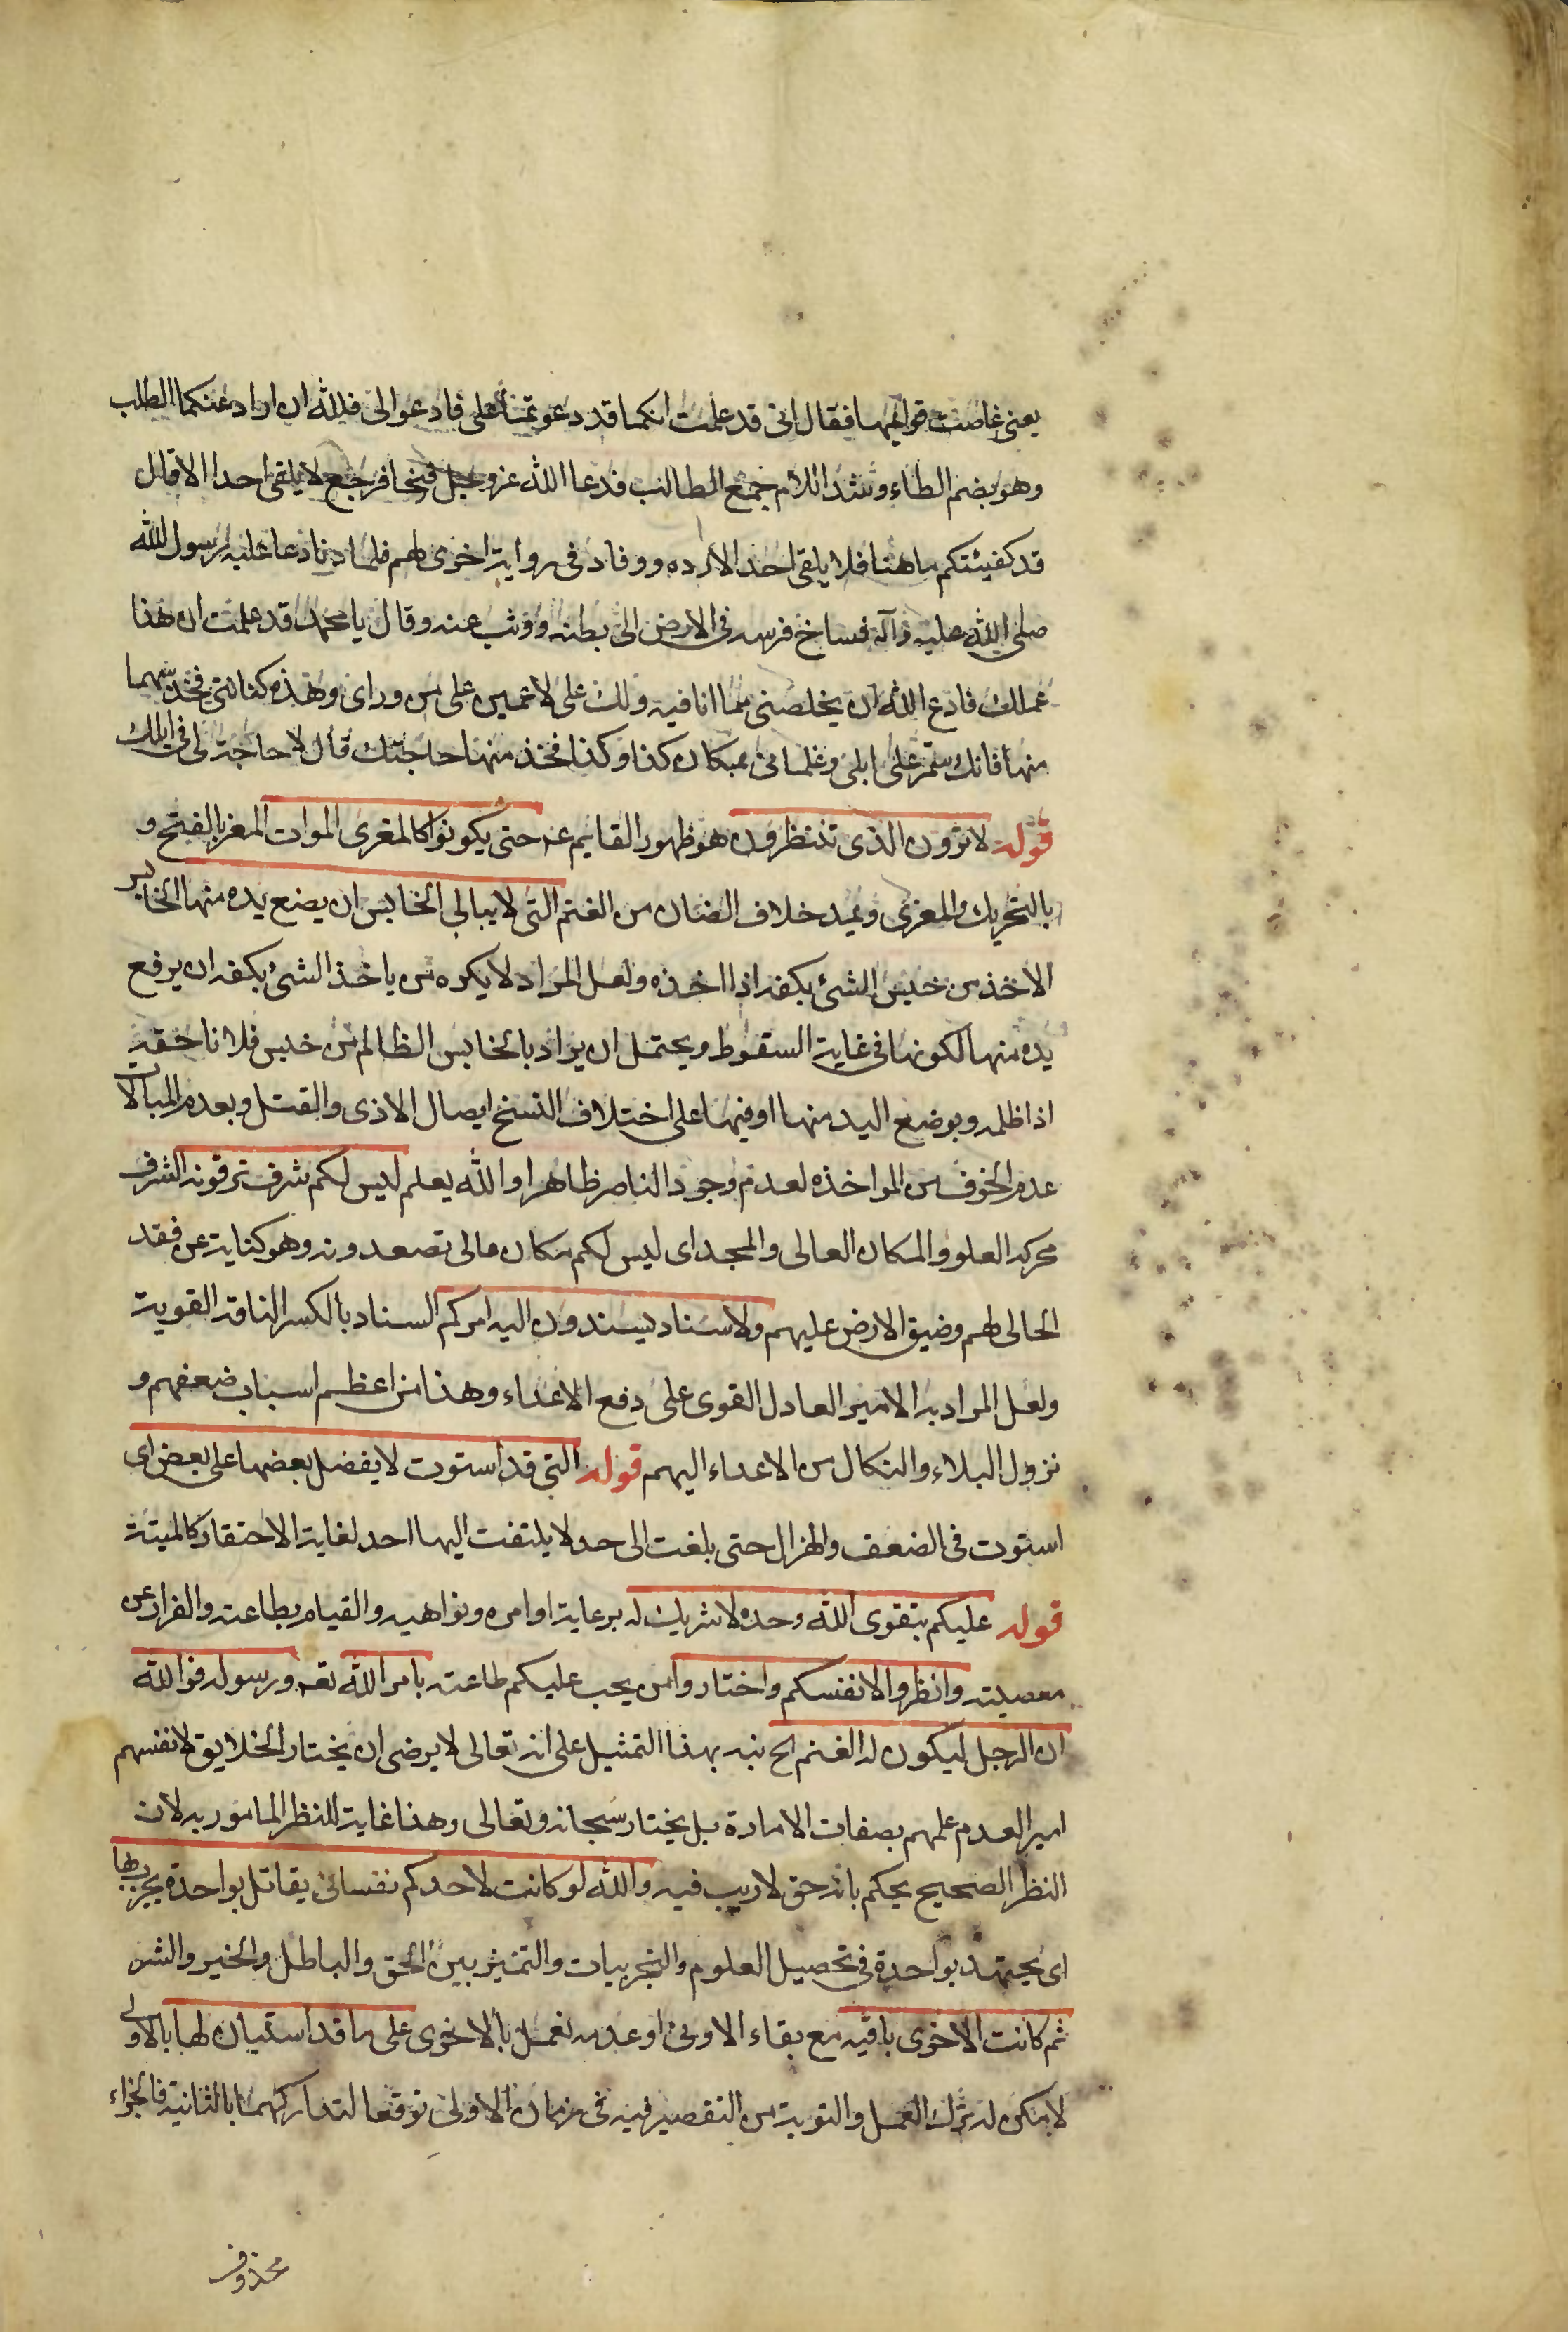 يعنى غاصت قوايمها فقال انى قد علمت انكما قد دعوتما على فادعوا لى فلله ان اراد عنكما الطلب
وهو بضم الطاء وشد اللام جمع الطالب فدعا الله عز وجل فنجا فرجع لا يلقى احدا الا قال
قد كفيتكم ما هنا فلا يلقى احدا الا رده ووفاد فى رواية اخرى لهم فلما دنا دعا عليه رسول الله
صلى الله عليه وآله فساخ فرسه فى الارض الى بطنه ووثب عنه وقال يا محمد قد علمت ان هذا
عملك فادع الله ان يخلصنى مما انا فيه ولك على لاعمين على من وراى وهذه كنانتى فخذ سهما
منها فانك ستمر على ابلى وغلمانى بمكان كذا وكذا فخذ منها حاجتك قال لا حاجة لى فى ابلك
قوله لا ترون الذى تنتظرون هو ظهور القايم عم حتى يكونوا كالمغرى الموات المعز بالفتح و
بالتحريك والمعزى ويمد خلاف الضان من الغنم التى لا يبالى الخابس ان يضع يده منها الخابس
الاخذ من خبس الشئ بكفه اذا اخذه ولعل المراد لا يكره من ياخذ الشئ بكفه ان يرفع
يده منها لكونها فى غاية السقوط ويحتمل ان يراد بالخابس الظالم من خبس فلانا حقه
اذا ظلمه وبوضع اليد منها او فيها على اختلاف النسخ ايصال الاذى والقتل وبعدم المبالات
عدم الخوف من المواخذه لعدم وجود الناصر ظاهرا والله يعلم ليس لكم شرف ترقونه الشرف
محركه العلو والمكان العالى والمجد اى ليس لكم مكان عالى تصعدونه وهو كناية عن فقد
الحالى لهم وضيق الارض عليهم ولا سناد يسندون اليه امركم السناد بالكسر الناقه القوية
ولعل المراد به الامير العادل القوى على دفع الاعداء وهذا من اعظم اسباب ضعفهم و
نزول البلاء والنكال من الاعداء اليهم قوله التى قد استوت لا يفضل بعضها على بعض اى
استوت فى الضعف والهزال حتى بلغت الى حد لا يلتفت اليها احد لغاية الاحتقار كالميتة
قوله عليكم بتقوى الله وحده لا شريك له برعاية اوامره ونواهيه والقيام بطاعته والفرار عن
معصيته وانظروا لانفسكم واختاروا من يجب عليكم طاعته بامر الله تعـ ورسوله فوالله
ان الرجل ليكون له الغنم الخ نبه بهذا التمثيل على انه تعالى لا يرضى ان يختار الخلايق لانفسهم
امير العدم علمهم بصفات الامارة بل يختار سبحانه وتعالى وهذا غاية للنظر المامور به لان
النظر الصحيح يحكم بانه حق لا ريب فيه والله لو كانت لاحدكم نفسان يقاتل بواحدة يجرب بها
اى يجتهد بواحدة فى تحصيل العلوم والتجربيات والتميز بين الحق والباطل والخير والشر
ثم كانت الاخرى باقيه مع بقاء الاولى او عدمه تعمل بالاخرى على ما قد استبان لها بالاولى
لامكن له ترك العمل والتوبة من التقصير فيه فى زمان الاولى توقعا لتداركهما بالثانية فالجزاء
محذوف